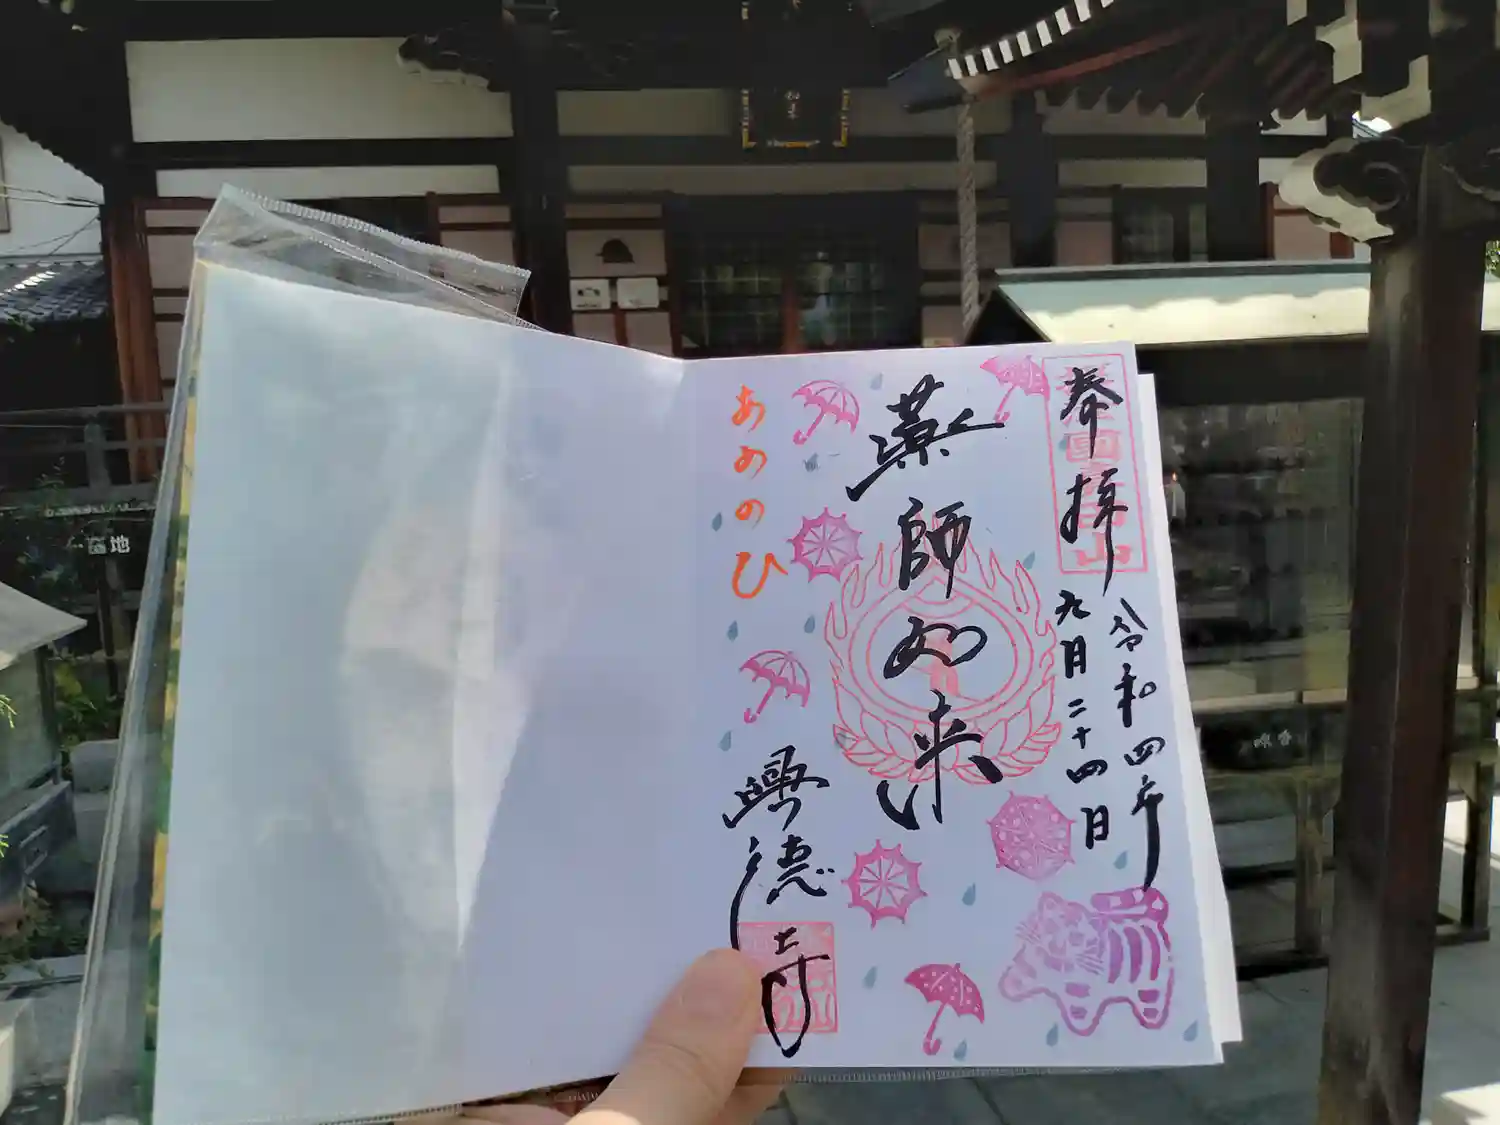 奉拝
令和四年
九月二十四日
薬師如来
あめのひ
興徳寺
墓地